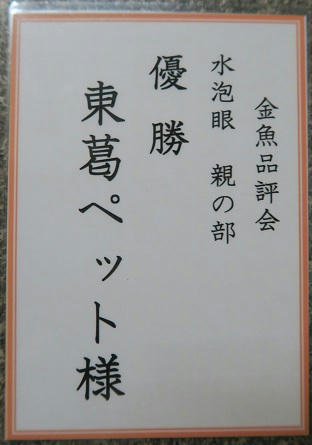 金魚品評会
水泡眼　親の部
優勝
東葛ペット様